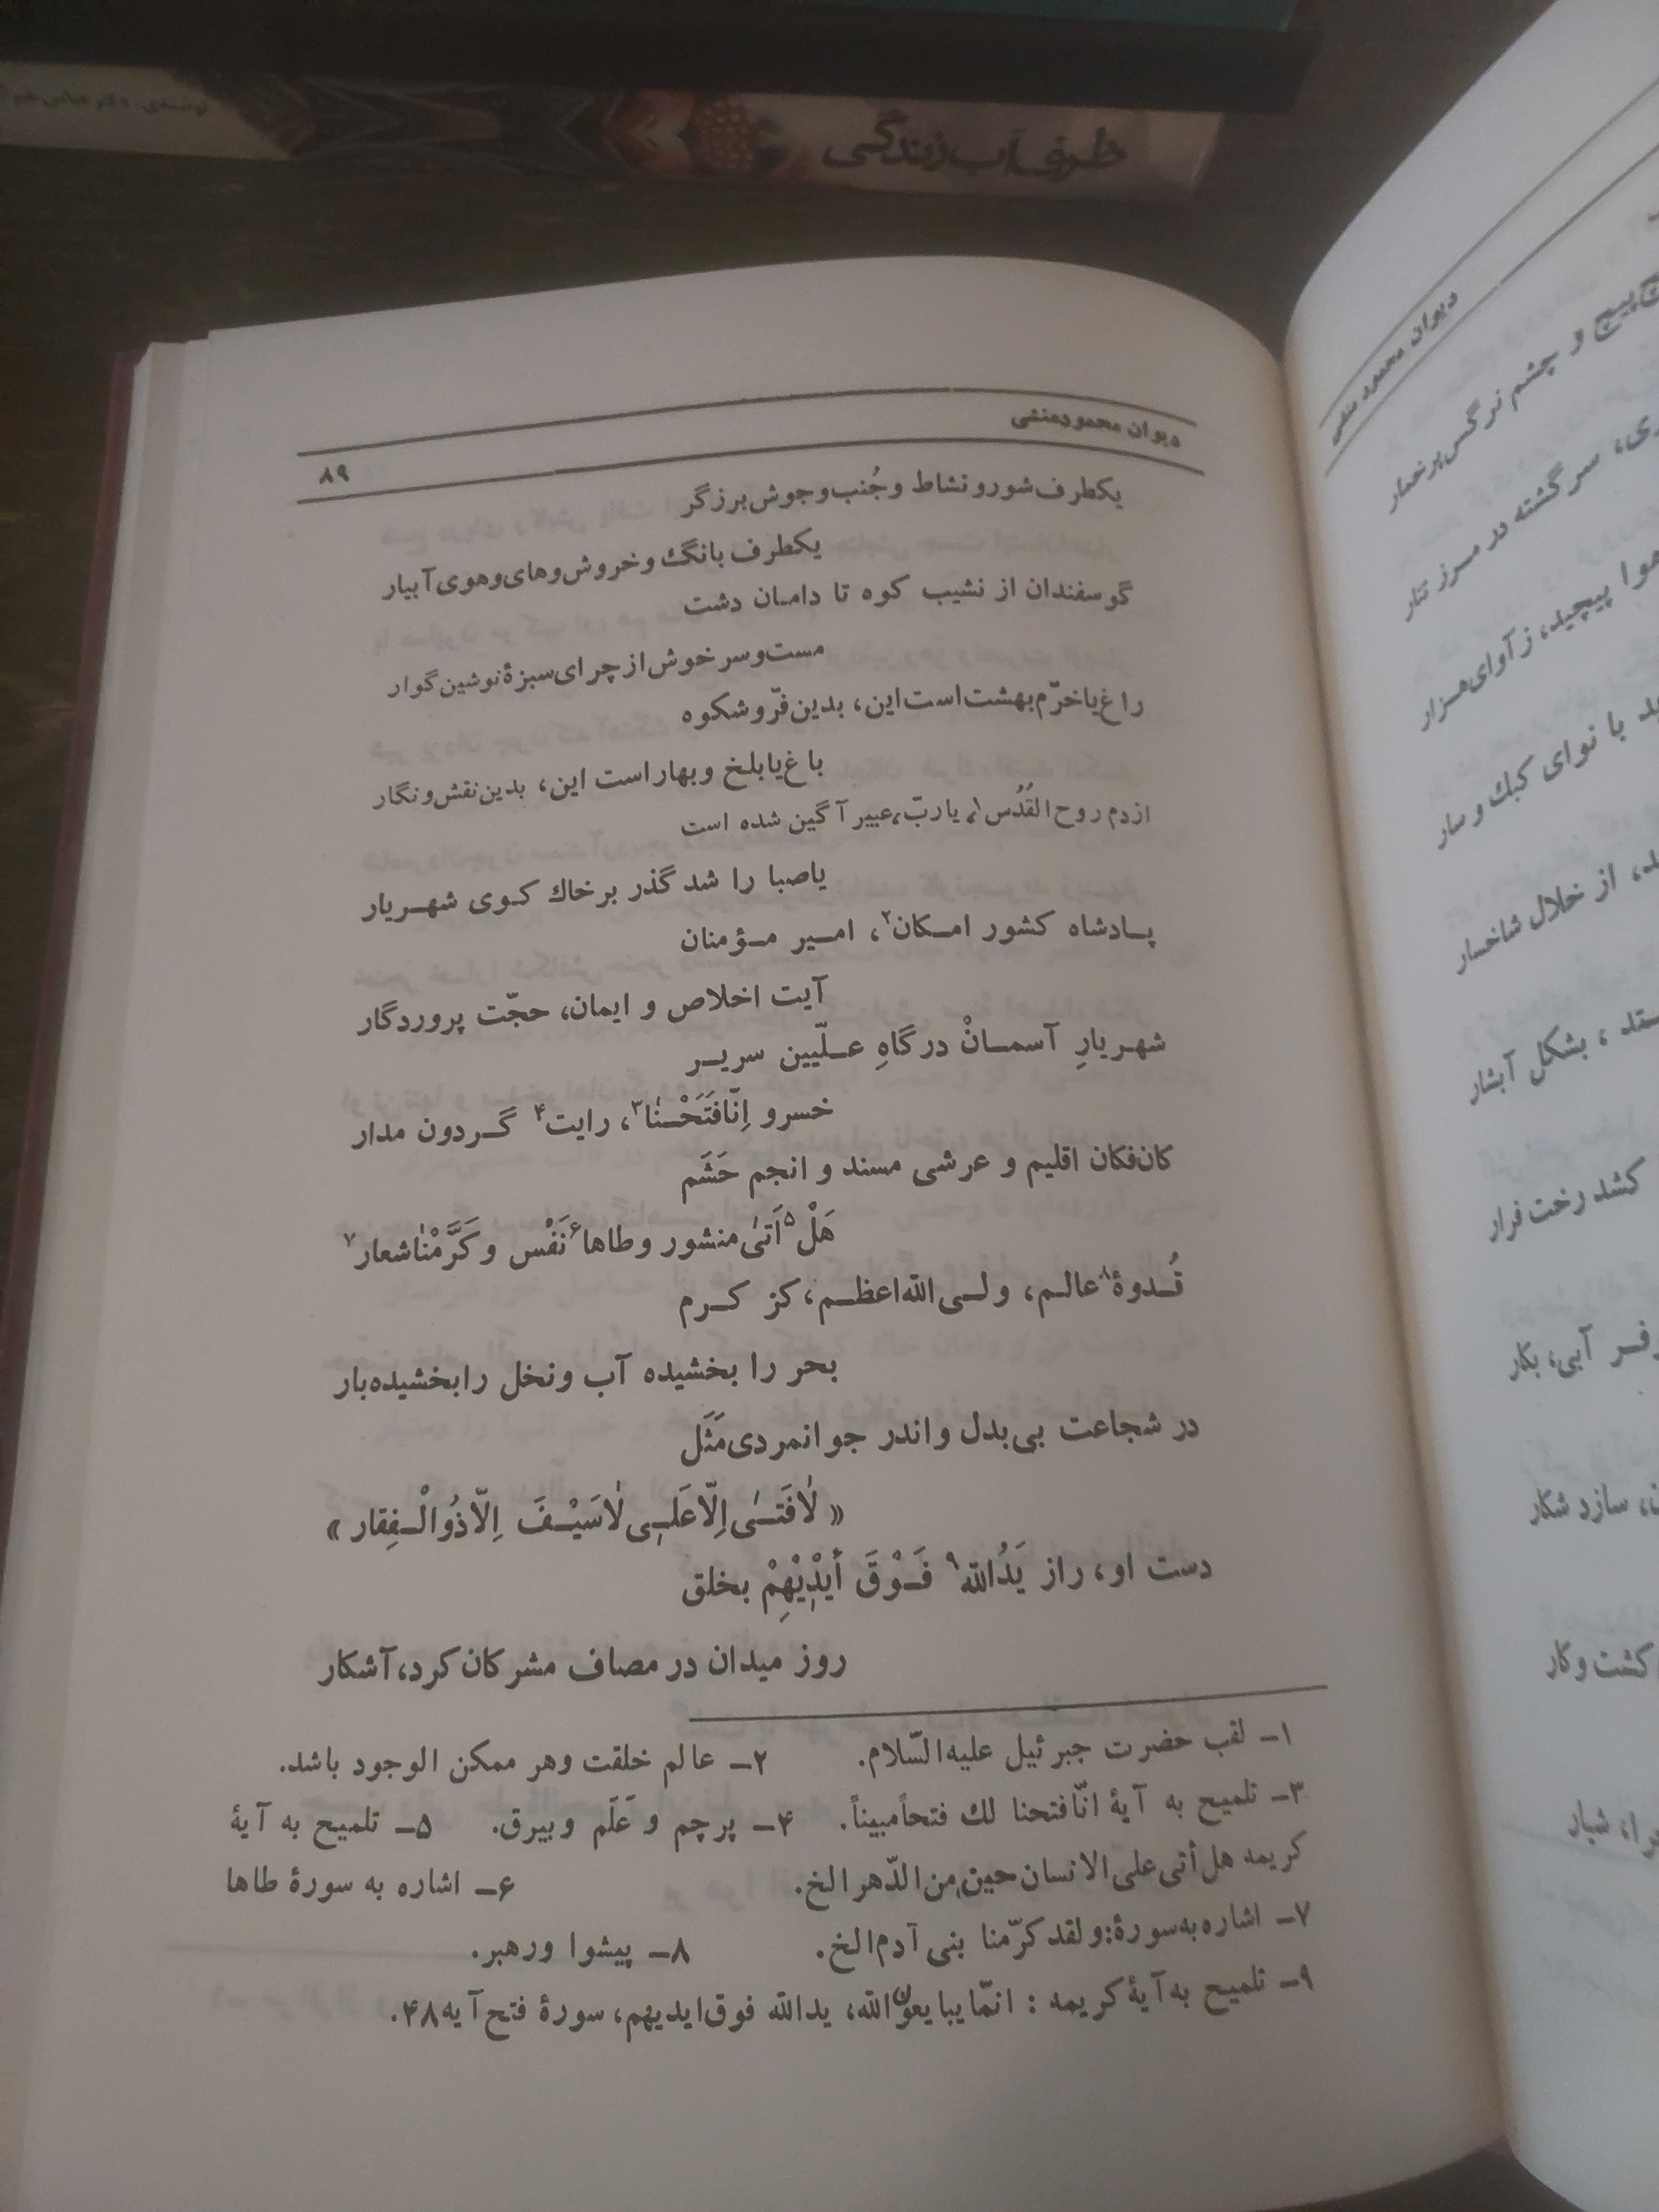 ظرفی آب زندگی
دیوان محمودمنشی
۸۹
یکطرف شورو نشاط و جُنب و جوش برزگر
یکطرف بانگ و خروش و های و هوی آبیار
گوسفندان از نشیب کوه تا دامان دشت
مست و سر خوش از چرای سبزهٔ نوشین گوار
راغ یا خرّم بهشت است این، بدین فرّ و شکوه
باغ یا بلخ و بهار است این، بدین نقش و نگار
از دم روح القُدُس۱، یا ربّ، عبیر آگین شده است
یا صبا را شد گذر بر خاك کوی شهریار
پادشاه کشور امکان۲، امیر مؤمنان
آیت اخلاص و ایمان، حجّت پروردگار
شهریارِ آسمانْ درگاهِ علّیین سریر
خسرو اِنّافَتَحْنٰا۳، رایت۴ گردون مدار
کان‌فکان اقلیم و عرشی مسند و انجم حَشَم
هَلْ۵ اَتیٰ منشور و طاها۶ نَفْس و کَرَّمْنٰا شعار۷
قُدوهٔ۸ عالم، ولی الله اعظم، کز کرم
بحر را بخشیده آب و نخل را بخشیده بار
در شجاعت بی بدل و اندر جوانمردی مَثَل
« لٰافَتیٰ اِلّا عَلی لٰاسَیْفَ اِلّا ذُوالْفِقار »
دست او، راز یَدُالله۹ فَوْقَ أَیْدْیْهِمْ بخلق
روز میدان در مصاف مشرکان کرد، آشکار
۱ـ لقب حضرت جبرئیل علیه السّلام. ۲ـ عالم خلقت و هر ممکن الوجود باشد.
۳ـ تلمیح به آیهٔ انّافتحنا لك فتحاً مبیناً. ۴ـ پرچم و عَلَم و بیرق. ۵ـ تلمیح به آیهٔ
کریمه هل أتی علی الانسان حین من الدّهر الخ. ۶ـ اشاره به سورهٔ طاها
۷ـ اشاره به سورهٔ: ولقد کرّمنا بنی آدم الخ. ۸ـ پیشوا و رهبر.
۹ـ تلمیح به آیهٔ کریمه : انّما یبایعون الله، یدالله فوق ایدیهم، سورهٔ فتح آیه ۴۸.
دیوان محمود منشی
پیچ و چشم نرگس پر خمار
سرگشته در مرز تتار
هوا پیچید، ز آوای هزار
با نوای کبك و سار
از خلال شاخسار
بشکل آبشار
کشد رخت فرار
آبی، بکار
سازد شکار
کشت و کار
شیار